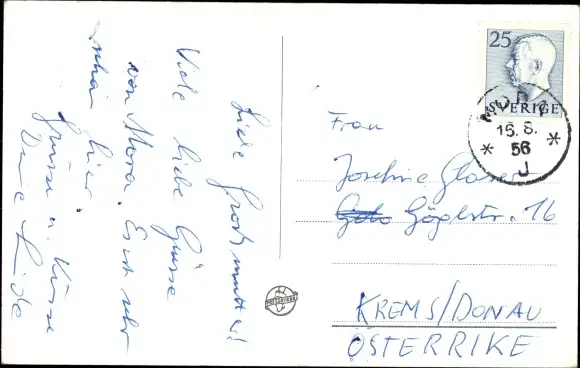 Liebe Grossmutter!
Viele liebe Grüsse
von Mora. Es ist sehr
schön hier.
Grüsse u. Küsse
Deine
Frau
Josefine Glaser
Göglstr. 16
KREMS/DONAU
ÖSTERRIKE
25
SVERIGE
MORA
15.8.
56
J